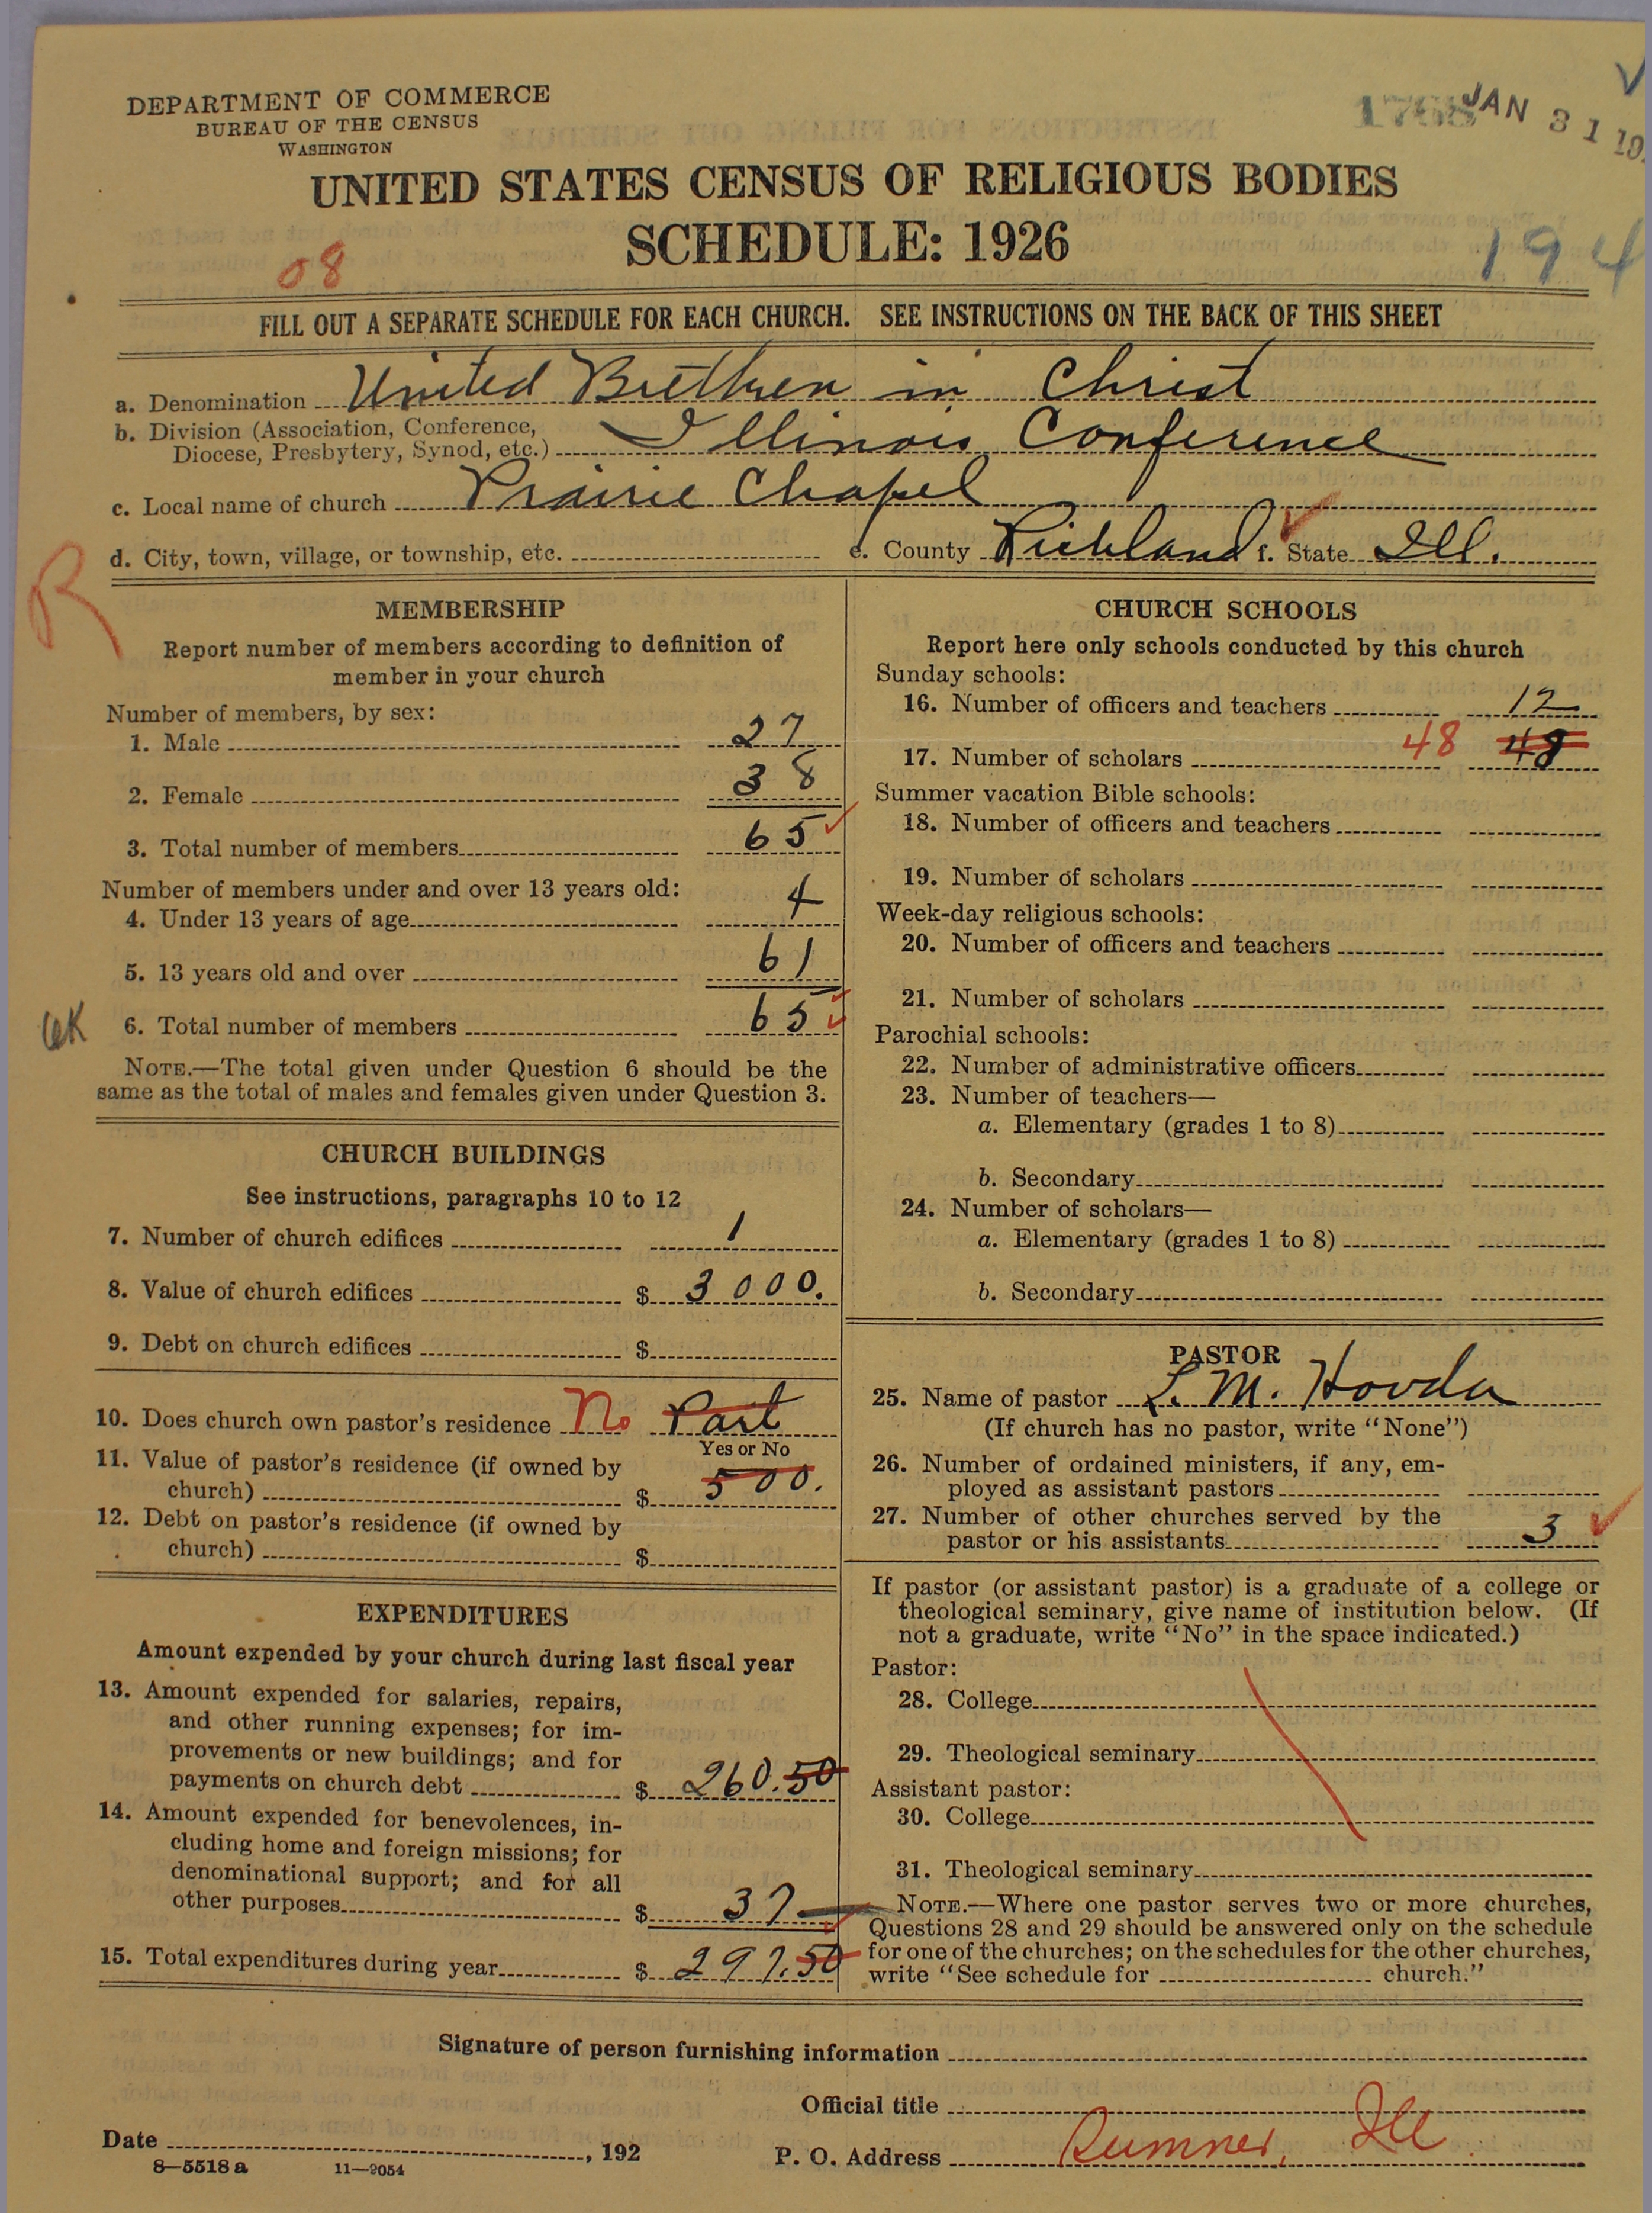 DEPARTMENT OF COMMERCE
BUREAU OF THE CENSUS
WASHINGTON
1768
JAN 31 19
UNITED STATES CENSUS OF RELIGIOUS BODIES
SCHEDULE: 1926
08
194
FILL OUT A SEPARATE SCHEDULE FOR EACH CHURCH. SEE INSTRUCTIONS ON THE BACK OF THIS SHEET
a. Denomination United Brethren in Christ
b. Division (Association, Conference,
Diocese, Presbytery, Synod, etc.) Illinois Conference
c. Local name of church Prairie Chapel
d. City, town, village, or township, etc. e. County Richland f. State Ill.
R
MEMBERSHIP
Report number of members according to definition of
member in your church
Number of members, by sex:
1. Male 27
2. Female 38
3. Total number of members 65
Number of members under and over 13 years old:
4. Under 13 years of age 4
5. 13 years old and over 61
6. Total number of members 65
NOTE.—The total given under Question 6 should be the
same as the total of males and females given under Question 3.
CHURCH BUILDINGS
See instructions, paragraphs 10 to 12
7. Number of church edifices 1
8. Value of church edifices $ 3000.
9. Debt on church edifices $
10. Does church own pastor's residence No Part
Yes or No
11. Value of pastor's residence (if owned by
church) $ 500.
12. Debt on pastor's residence (if owned by
church) $
EXPENDITURES
Amount expended by your church during last fiscal year
13. Amount expended for salaries, repairs,
and other running expenses; for im-
provements or new buildings; and for
payments on church debt $ 260.50
14. Amount expended for benevolences, in-
cluding home and foreign missions; for
denominational support; and for all
other purposes $ 37—
15. Total expenditures during year $ 297.50
CHURCH SCHOOLS
Report here only schools conducted by this church
Sunday schools:
16. Number of officers and teachers 12
17. Number of scholars 48 48
Summer vacation Bible schools:
18. Number of officers and teachers
19. Number of scholars
Week-day religious schools:
20. Number of officers and teachers
21. Number of scholars
Parochial schools:
22. Number of administrative officers
23. Number of teachers—
a. Elementary (grades 1 to 8)
b. Secondary
24. Number of scholars—
a. Elementary (grades 1 to 8)
b. Secondary
PASTOR
25. Name of pastor L. M. Hovda
(If church has no pastor, write "None")
26. Number of ordained ministers, if any, em-
ployed as assistant pastors
27. Number of other churches served by the
pastor or his assistants 3
If pastor (or assistant pastor) is a graduate of a college or
theological seminary, give name of institution below. (If
not a graduate, write "No" in the space indicated.)
Pastor:
28. College
29. Theological seminary
Assistant pastor:
30. College
31. Theological seminary
NOTE.—Where one pastor serves two or more churches,
Questions 28 and 29 should be answered only on the schedule
for one of the churches; on the schedules for the other churches,
write "See schedule for church."
Signature of person furnishing information
Official title
Date , 192
P. O. Address Sumner, Ill
8—5518 a 11—9054